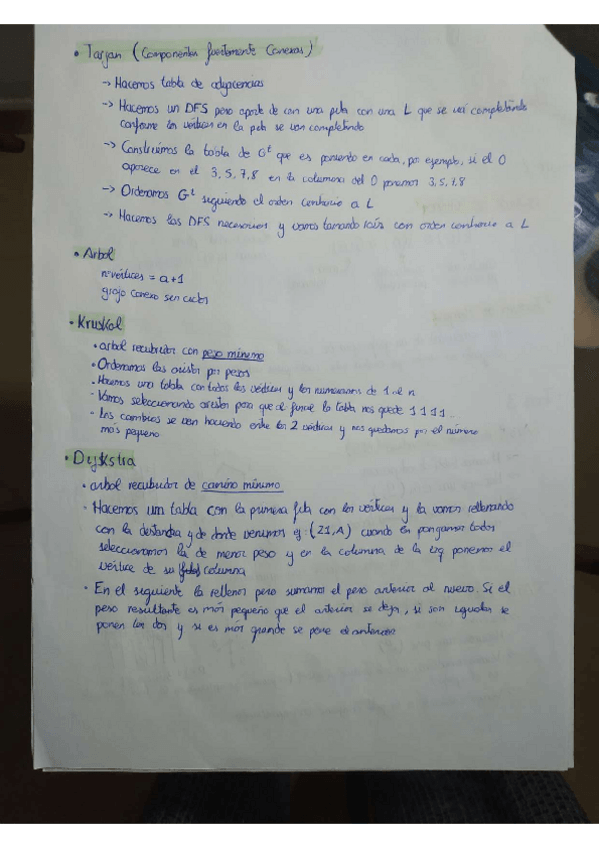 • Tarjan (Componentes fuertemente Conexas)
→ Hacemos tabla de adyacencias
→ Hacemos un DFS pero aparte de con una pila con una L que se va completando
conforme los vértices en la pila se van completando
→ Construimos la tabla de Gᵗ que es poniendo en cada, por ejemplo, si el 0
aparece en el 3, 5, 7, 8 en la columna del 0 ponemos 3, 5, 7, 8
→ Ordenamos Gᵗ siguiendo el orden contrario a L
→ Hacemos los DFS necesarios y vamos tomando raíz con orden contrario a L
• Arbol
nº vértices = a+1
grafo conexo sin ciclos
• Kruskal
• arbol recubridor con peso mínimo
• Ordenamos las aristas por pesos
• Hacemos una tabla con todos los vértices y los numeramos de 1 al n
- Vamos seleccionando aristas para que al final la tabla nos quede 1 1 1 1 ...
- Los cambios se van haciendo entre los 2 vértices y nos quedamos por el número
más pequeño
• Dijkstra
• arbol recubridor de camino mínimo
• Hacemos una tabla con la primera fila con los vértices y la vamos rellenando
con la distancia y de donde venimos ej: (21,A) cuando en pongamos todos
seleccionamos la de menor peso y en la columna de la izq ponemos el
vértice de su columna
• En el siguiente la rellenos pero sumamos el peso anterior al nuevo. Si el
peso resultante es más pequeño que el anterior se deja, si son iguales se
ponen los dos y si es más grande se pone el anterior